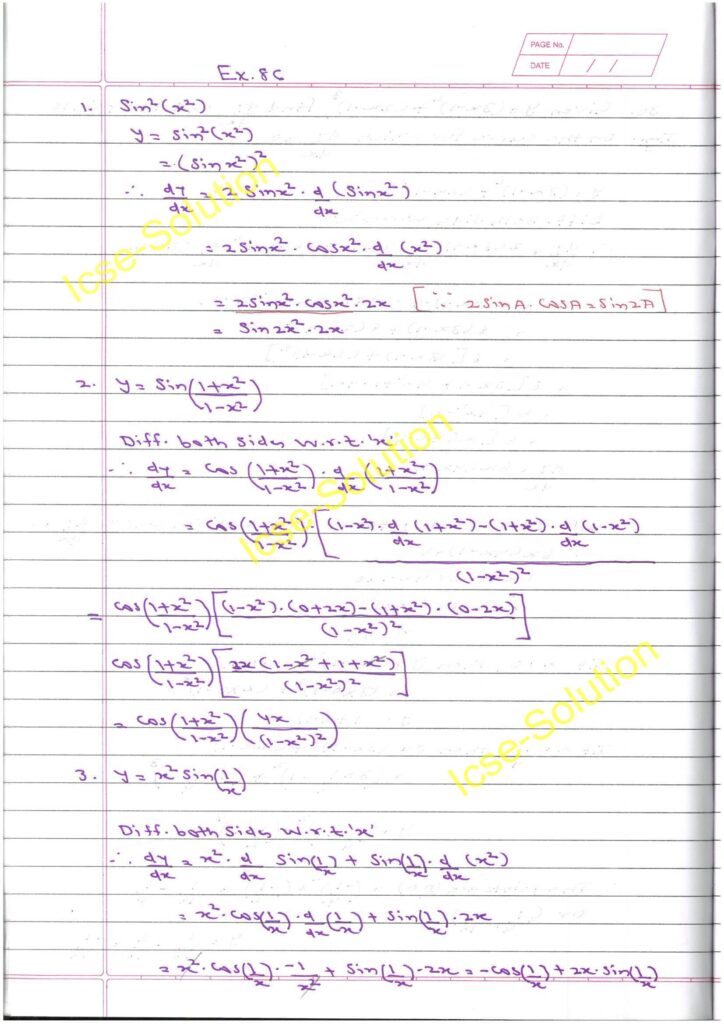 PAGE No.
DATE / /
Ex. 8C
1. Sin²(x²)
y = Sin²(x²)
= (Sin x²)²
∴ dy/dx = 2 Sinx² · d/dx (Sinx²)
= 2Sinx² · Cosx² · d/dx (x²)
= 2Sinx² · Cosx² · 2x [∵ 2SinA · CosA = Sin2A]
= Sin2x² · 2x
2. y = Sin((1+x²)/(1-x²))
Diff. both Sides w.r.t. 'x'
∴ dy/dx = Cos((1+x²)/(1-x²)) · d/dx((1+x²)/(1-x²))
= Cos((1+x²)/(1-x²)) · [((1-x²) · d/dx (1+x²) - (1+x²) · d/dx (1-x²))/(1-x²)²
= Cos((1+x²)/(1-x²)) [((1-x²) · (0+2x) - (1+x²) · (0-2x))/(1-x²)²]
Cos((1+x²)/(1-x²)) [2x(1-x²+1+x²)/(1-x²)²]
= Cos((1+x²)/(1-x²)) (4x/(1-x²)²)
3. y = x² Sin(1/x)
Diff. both Sides w.r.t. 'x'
∴ dy/dx = x² · d/dx Sin(1/x) + Sin(1/x) · d/dx (x²)
= x² · Cos(1/x) · d/dx(1/x) + Sin(1/x) · 2x
= x² · Cos(1/x) · -1/x² + Sin(1/x) · 2x = -Cos(1/x) + 2x · Sin(1/x)
Icse-Solution
Icse-Solution
Icse-Solution